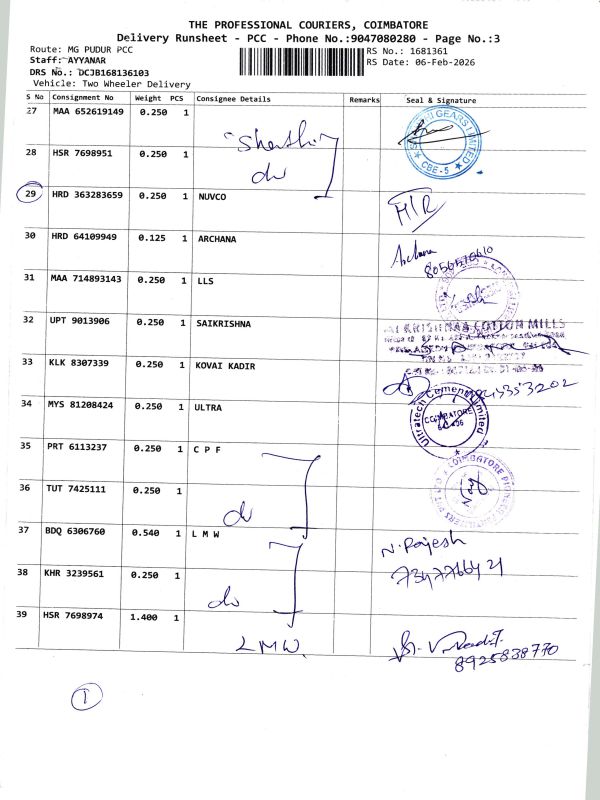 THE PROFESSIONAL COURIERS, COIMBATORE
Delivery Runsheet - PCC - Phone No.:9047080280 - Page No.:3
Route: MG PUDUR PCC
RS No.: 1681361
Staff: AYYANAR
RS Date: 06-Feb-2026
DRS No.: DCJB168136103
Vehicle: Two Wheeler Delivery
S No Consignment No Weight PCS Consignee Details Remarks Seal & Signature
27 MAA 652619149 0.250 1
GEARS LIMITED
CBE-5
28 HSR 7698951 0.250 1
do
29 HRD 363283659 0.250 1 NUVCO
30 HRD 64109949 0.125 1 ARCHANA Archana
31 MAA 714893143 0.250 1 LLS
32 UPT 9013906 0.250 1 SAIKRISHNA
KRISHNAA COTTON MILLS
33 KLK 8307339 0.250 1 KOVAI KADIR
34 MYS 81208424 0.250 1 ULTRA
Ultratech Cement Limited
COIMBATORE
35 PRT 6113237 0.250 1 C P F
COIMBATORE
36 TUT 7425111 0.250 1
do
37 BDQ 6306760 0.540 1 L M W N. Rajesh
7347766421
38 KHR 3239561 0.250 1
do
39 HSR 7698974 1.400 1
LMW
8925838770
1